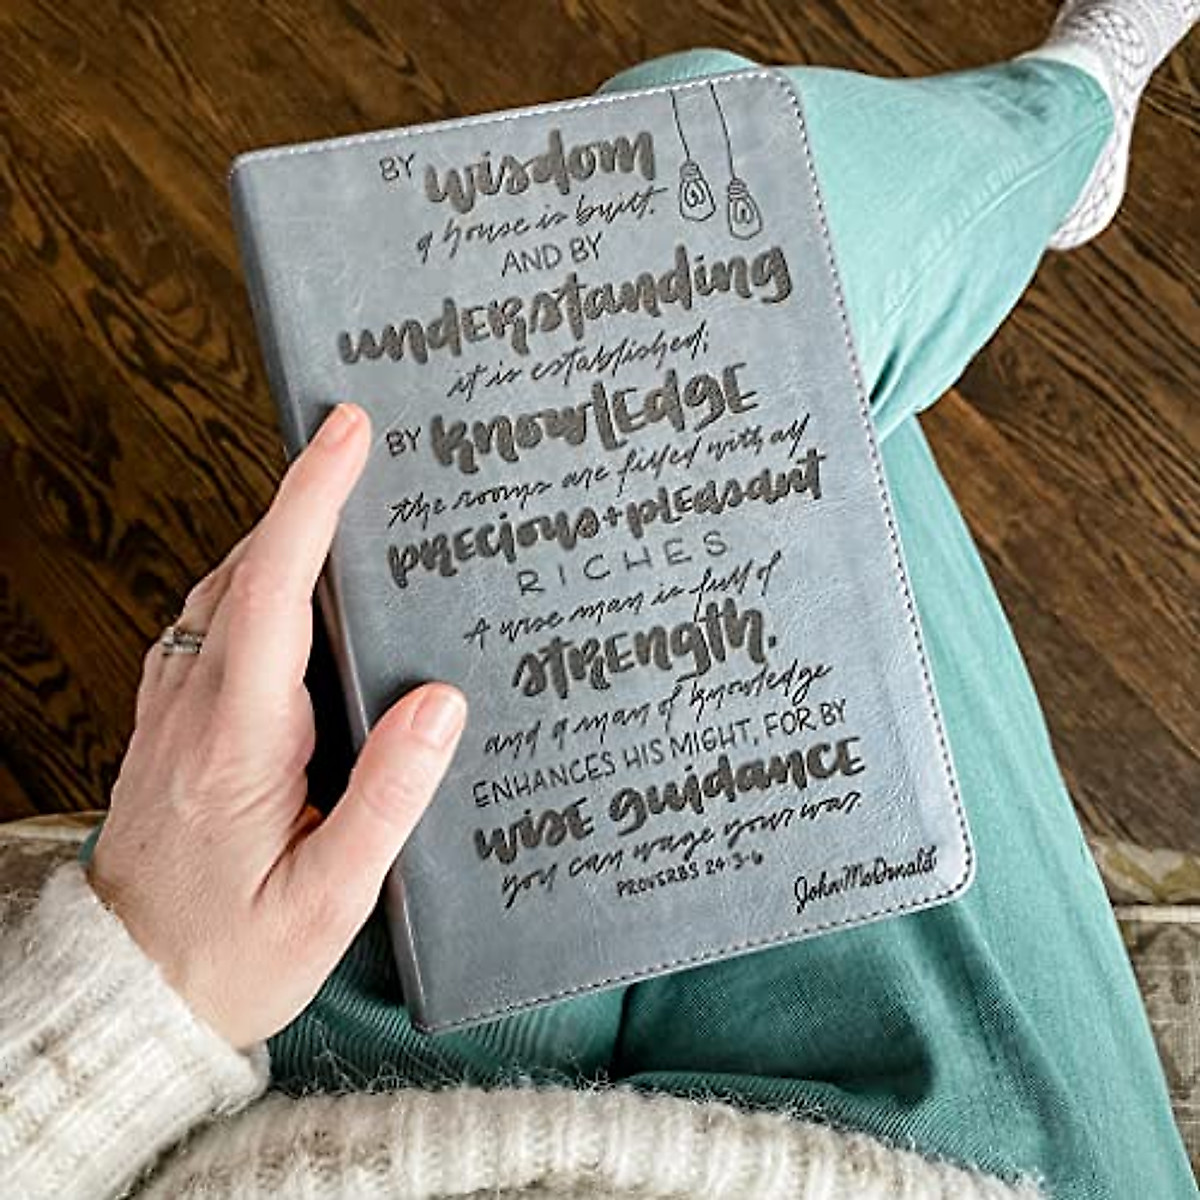 BY wisdom
a house is built.
AND BY
understanding
it is established;
BY knowledge
the rooms are filled with all
precious + pleasant
RICHES
A wise man is full of
strength,
and a man of knowledge
ENHANCES HIS MIGHT, FOR BY
wise guidance
you can wage your war
PROVERBS 24:3-6
John McDonald